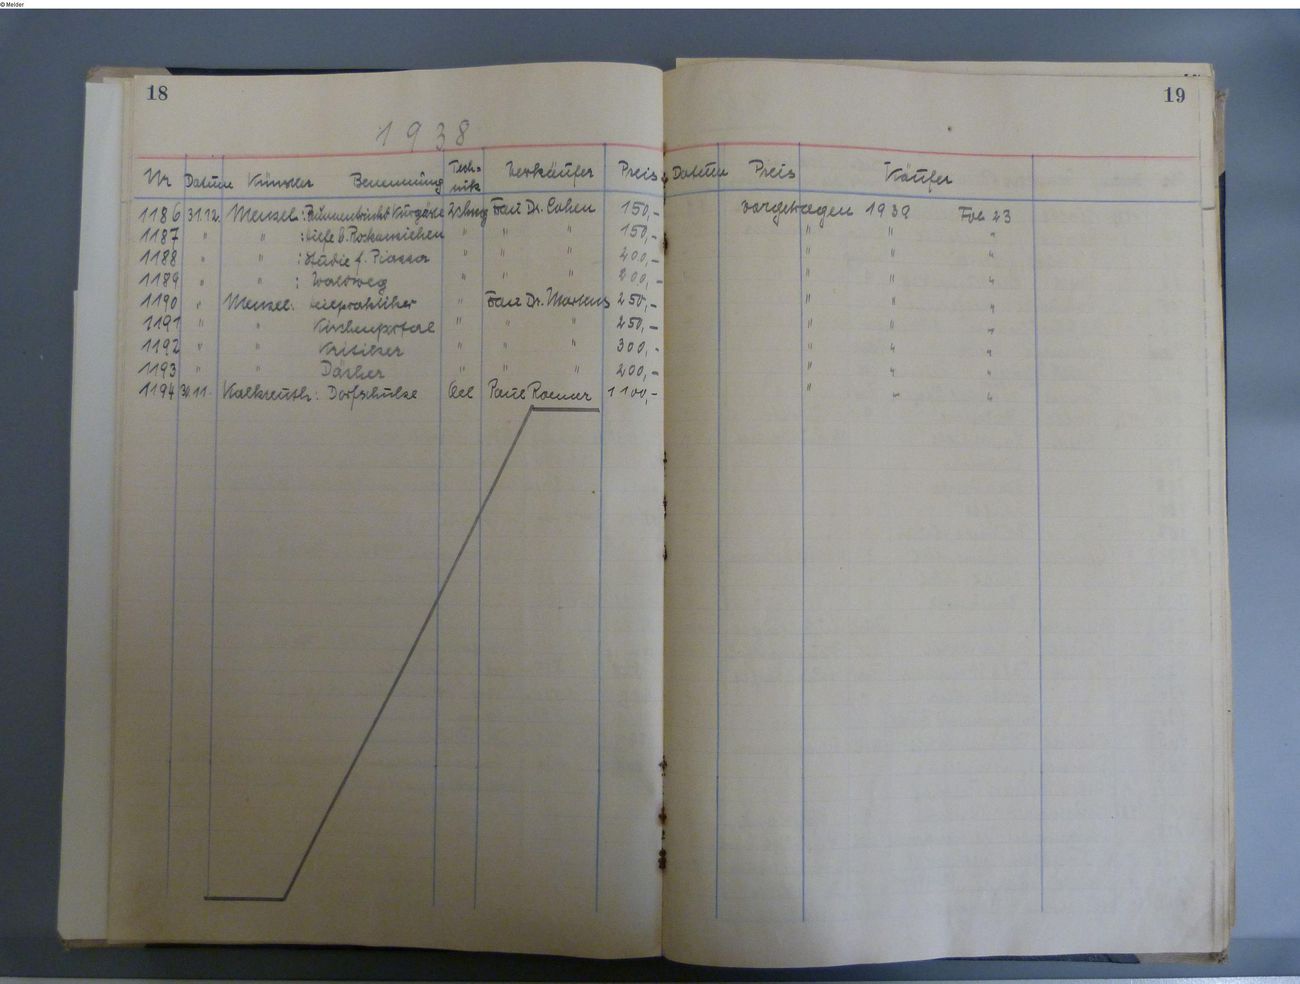 © Melder
18
19
1938
Nr Datum Künstler Benennung Tech-nik Verkäufer Preis Datum Preis Käufer
1186 31.12. Menzel: Kurgäste Zchng Frau Dr. Cohen 150,- vorgetragen 1939 Fol 23
1187 " " : " " " 150,- " " "
1188 " " : Studie f. Piazza " " " 200,- " " "
1189 " " : Waldweg " " " 200,- " " "
1190 " Menzel: " Frau Dr. Martens 250,- " " "
1191 " " Kirchenportal " " " 250,- " " "
1192 " " Kritiker " " " 300,- " " "
1193 " " Dächer " " " 200,- " " "
1194 30.11. Kalkreuth: Dorfschulze Oel Paul Roemer 1100,- " " "